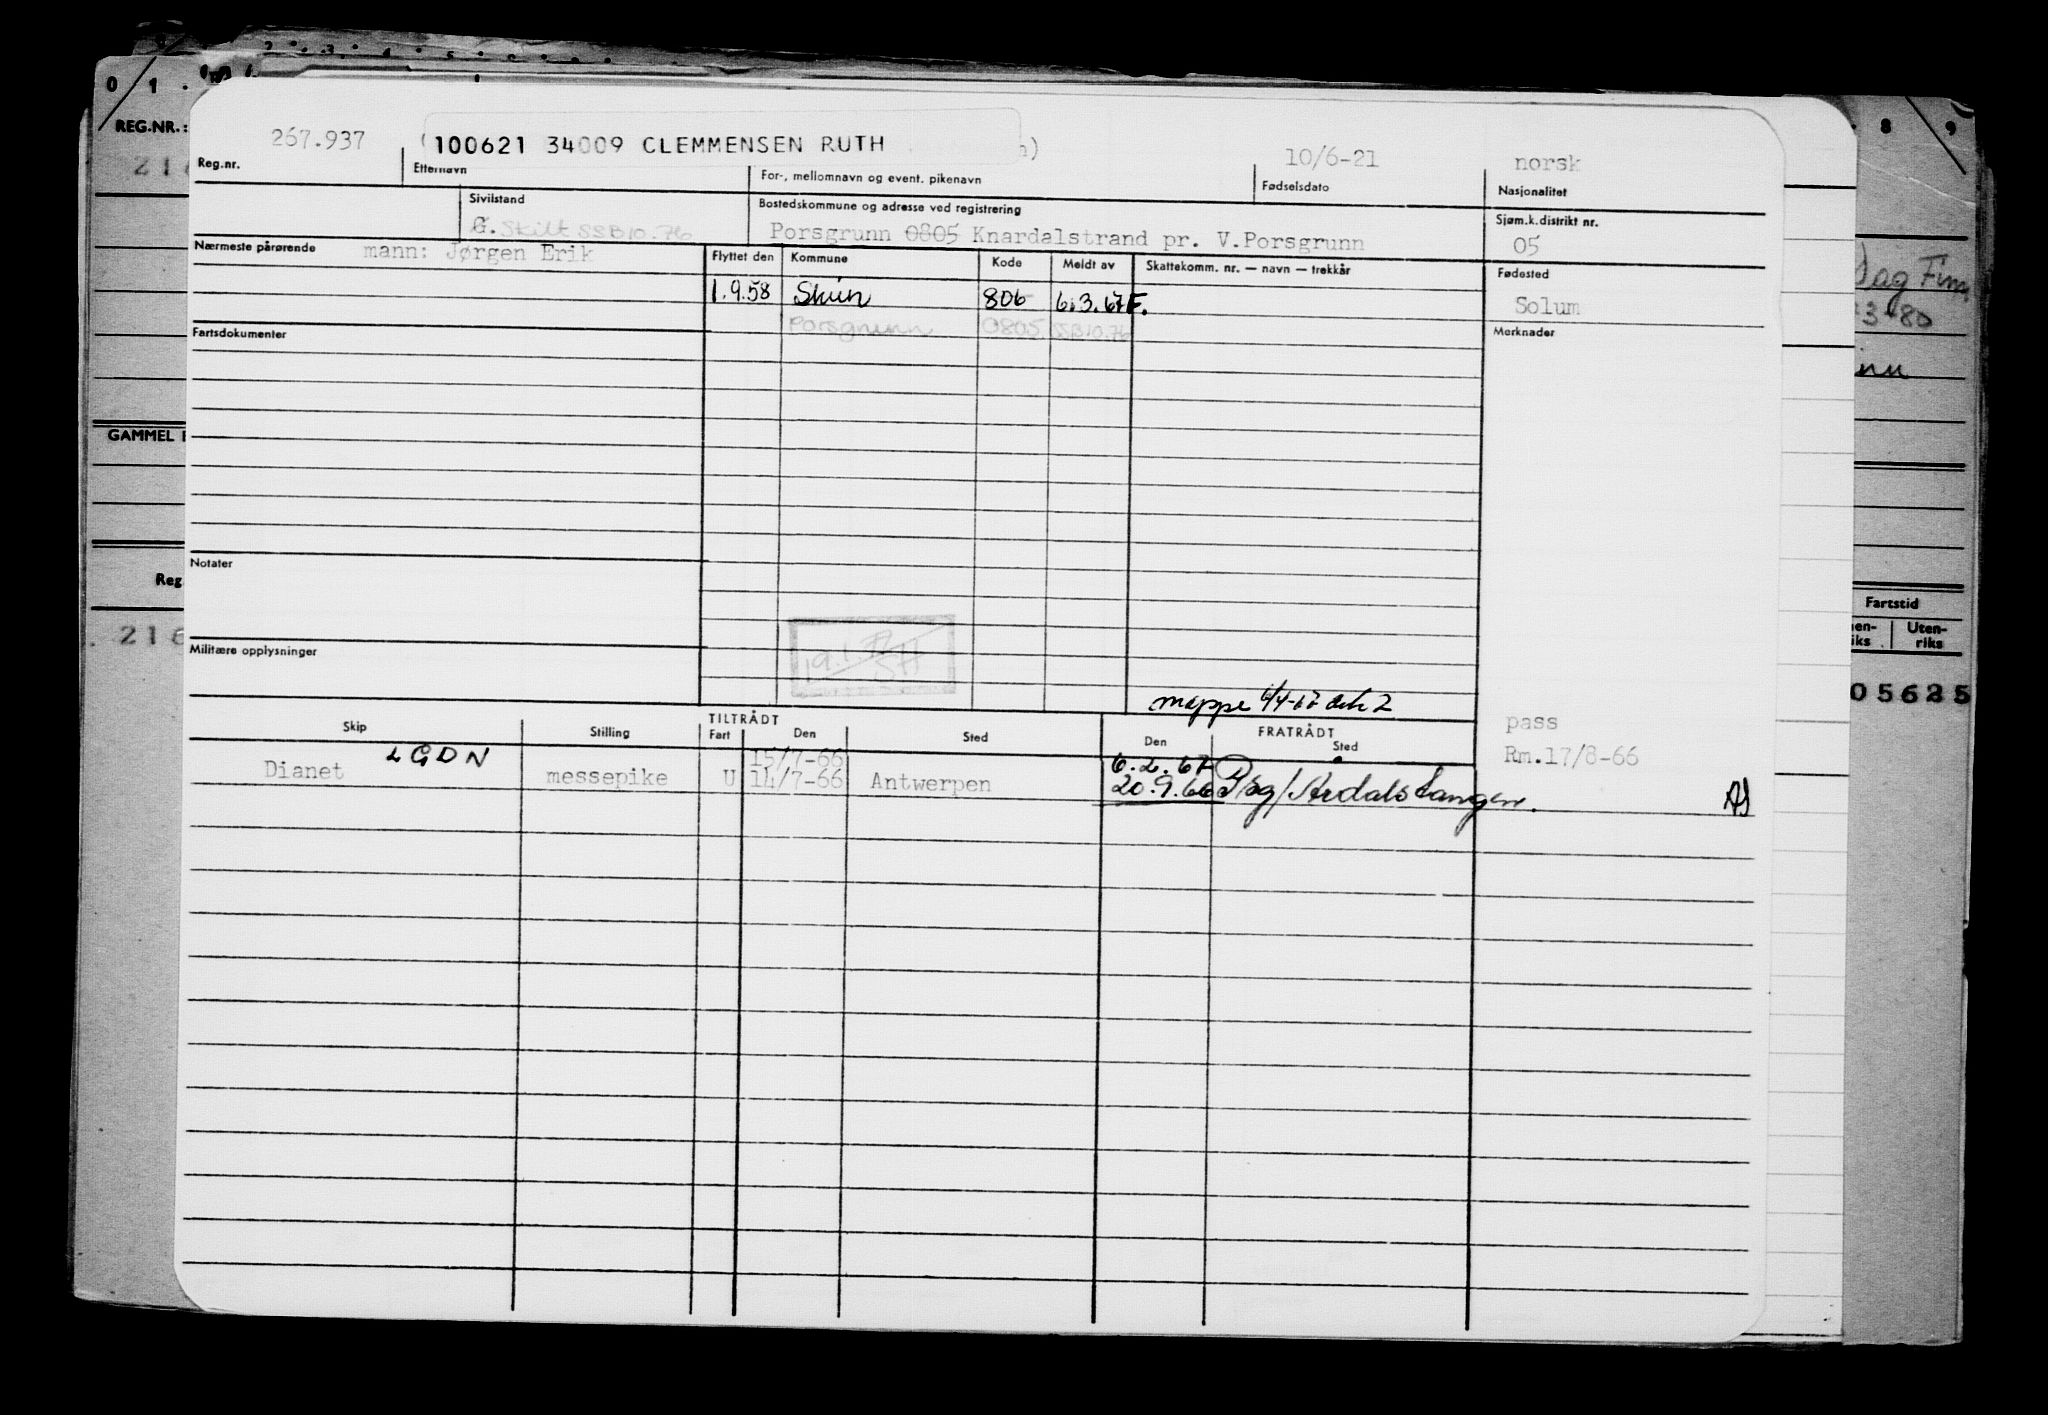 0 1 . 2 . 3 . 4 . 5 . 6 8 9
REG.NR.:
267.937 100621 34009 CLEMMENSEN RUTH 10/6-21 norsk
Reg.nr. Etternavn For-, mellomnavn og event. pikenavn Fødselsdato Nasjonalitet
Sivilstand Bostedskommune og adresse ved registrering Sjøm.k.distrikt nr.
G. Skilt SSB10.76 Porsgrunn 0805 Knardalstrand pr. V.Porsgrunn 05
Nærmeste pårørende mann: Jørgen Erik Flyttet den Kommune Kode Meldt av Skattekomm. nr. — navn — trekkår Fødested
1.9.58 Skien 806 6.3.67F. Solum
Porsgrunn 0805 SSB10.76
Fartsdokumenter Merknader
GAMMEL
Notater
Reg
Fartstid
Uten-
riks
216
Militære opplysninger
19.1
SH
05625
mappe 4/4-67 ark 2
pass
Skip Stilling TILTRÅDT Fart Den Sted FRATRÅDT Den Sted
LGDN 15/7-66 6.2.67 Rm.17/8-66
Dianet messepike U 14/7-66 Antwerpen 20.9.66 Psg/Årdalstangen.